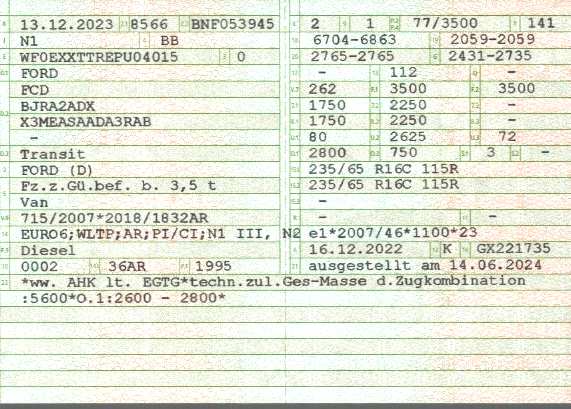 13.12.2023 8566 BNF053945
N1 BB
WF0EXXTTREPU04015 0
FORD
FCD
BJRA2ADX
X3MEASAADA3RAB
-
Transit
FORD (D)
Fz.z.Gü.bef. b. 3,5 t
Van
715/2007*2018/1832AR
EURO6;WLTP;AR;PI/CI;N1 III, N2
Diesel
0002 36AR 1995
*ww. AHK lt. EGTG*techn.zul.Ges-Masse d.Zugkombination
:5600*O.1:2600 - 2800*
2 1 77/3500 141
6704-6863 2059-2059
2765-2765 2431-2735
- 112 -
262 3500 3500
1750 2250 -
1750 2250 -
80 2625 72
2800 750 3 -
235/65 R16C 115R
235/65 R16C 115R
-
- -
e1*2007/46*1100*23
16.12.2022 K GX221735
ausgestellt am 14.06.2024